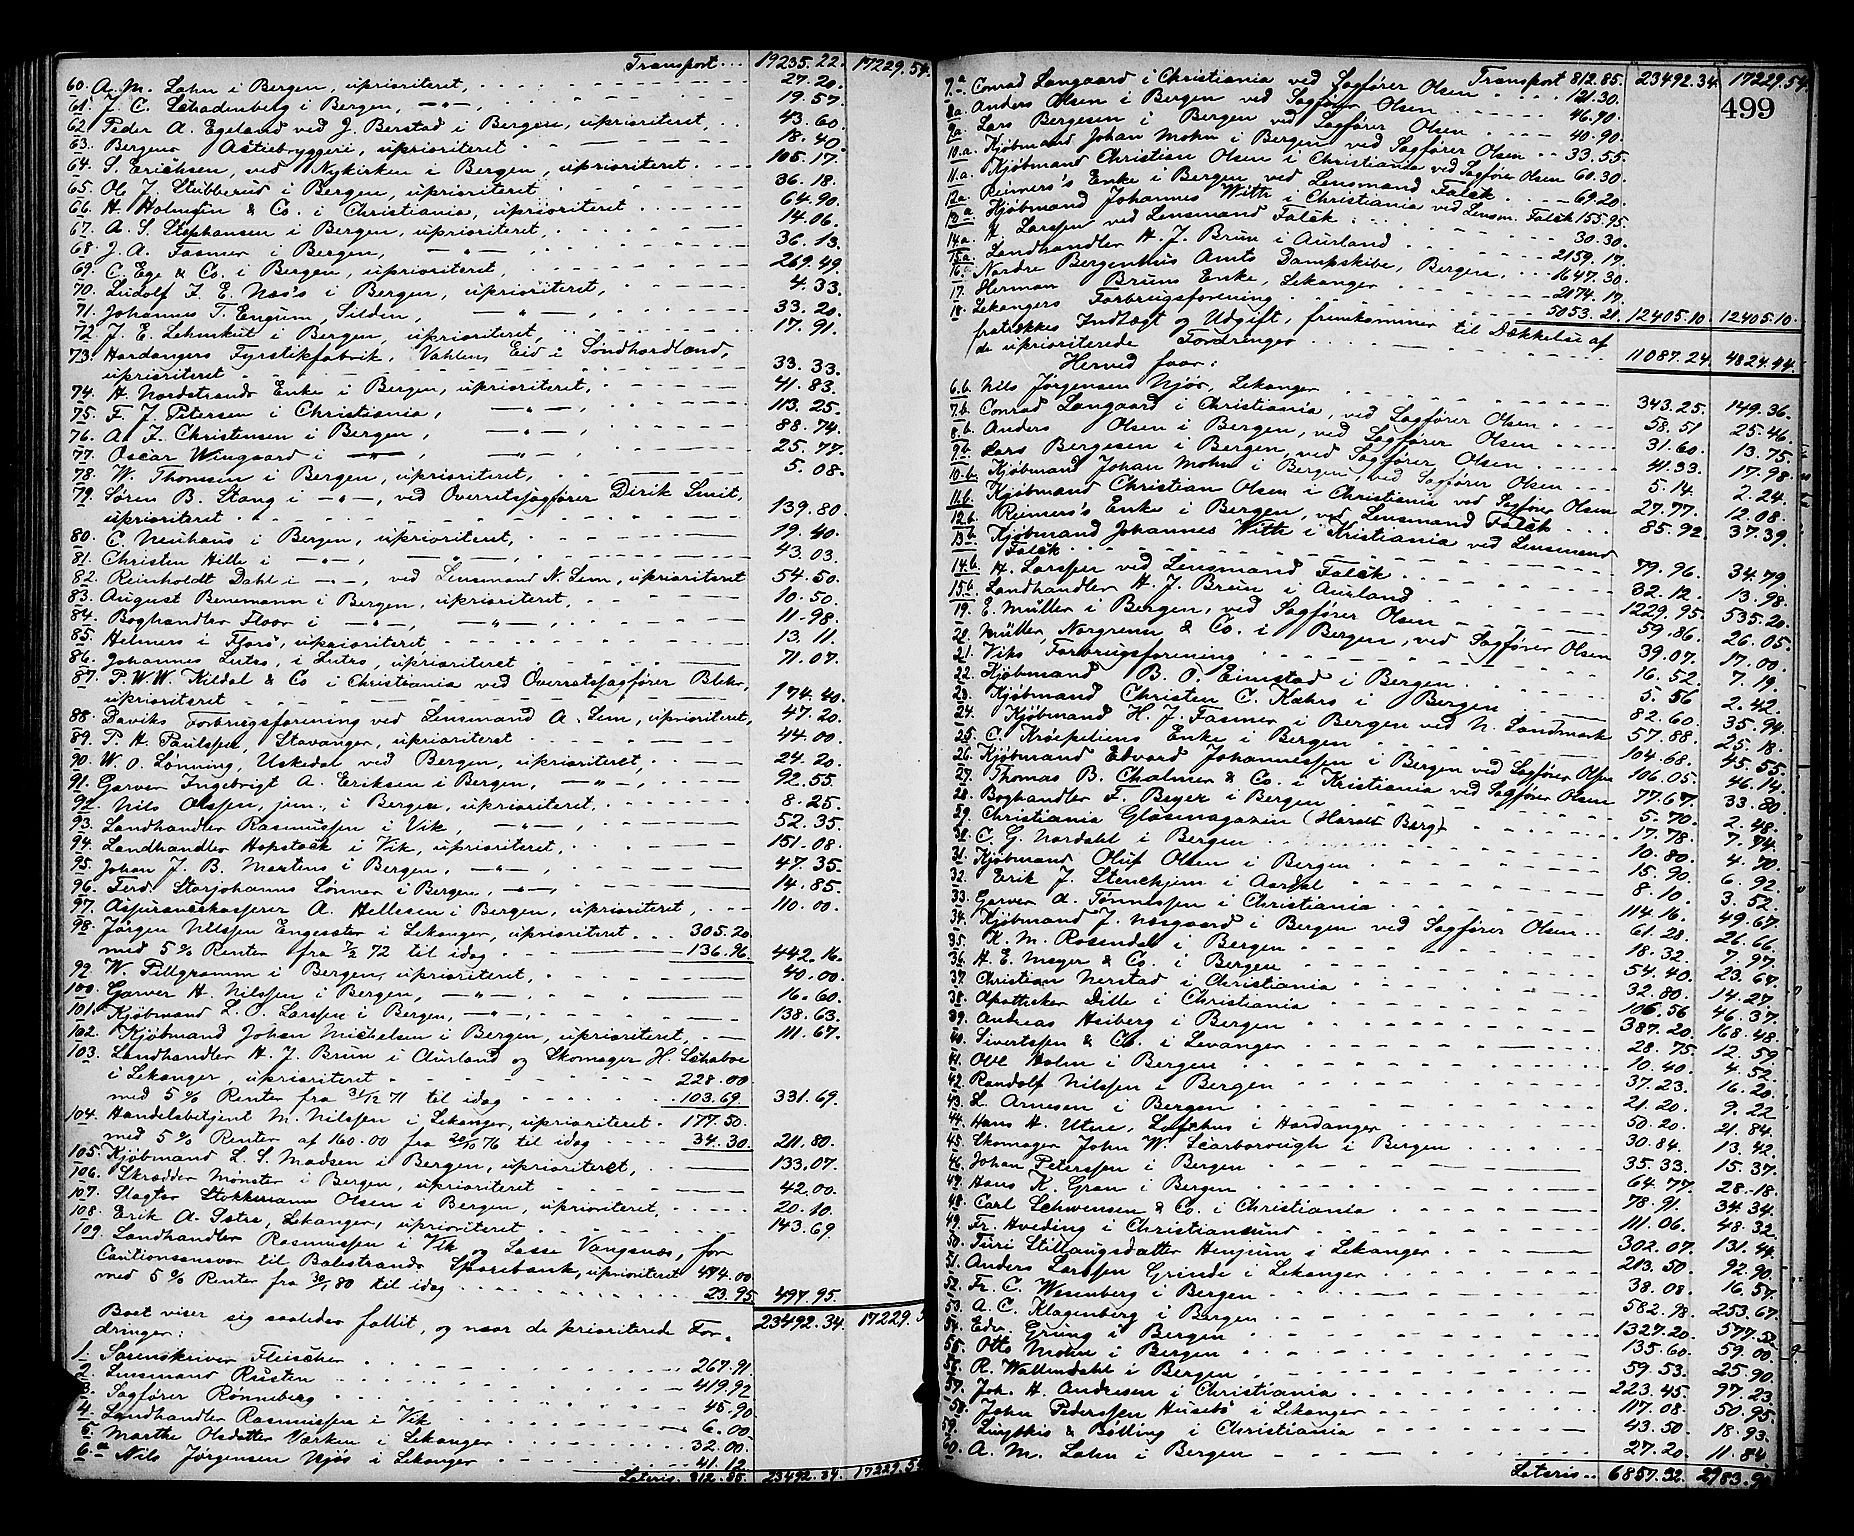 Transport ... 19235.22. 17229.54.
60. A. M. Lahn i Bergen, uprioriteret, 27.20.
61. J. C. Schadenberg i Bergen, —„—, 19.57.
62. Peder A. Egeland ved J. Berstad i Bergen, uprioriteret, 43.60.
63. Bergens Actiebryggeri, uprioriteret 18.40.
64. S. Erichsen, ved Nykirken i Bergen, uprioriteret 105.17.
65. Ole J. Stubberud i Bergen, uprioriteret 36.18.
66. H. Holmsen & Co. i Christiania, uprioriteret 64.90.
67. A. S. Stephansen i Bergen, uprioriteret, 14.06.
68. J. A. Fasmer i Bergen, —„— 36.13.
69. C. Ege & Co. i Bergen, uprioriteret, 269.49.
70. Ludolf J. E. Næs's i Bergen, uprioriteret, 4.33.
71. Johannes T. Engum, Silden, —„—, 33.20.
72. J. E. Lehmkul i Bergen, uprioriteret, 17.91.
73. Hardangers Fyrstikfabrik, Vahlen, Eid i Søndhordland,
uprioriteret 33.33.
74. H. Nordstrands Enke i Bergen, uprioriteret, 41.83.
75. F. J. Petersen i Christiania, —„—, 113.25.
76. A. F. Christensen i Bergen, —„—, 88.74.
77. Oscar Wingaard i —„—, —„—, 25.77.
78. W. Thomsen i Bergen, uprioriteret, 5.08.
79. Søren B. Stang i —„—, ved Overretssagfører Dirik Smit,
uprioriteret 139.80.
80. C. Neuhaus i Bergen, uprioriteret, 19.40.
81. Christen Hille i —„—, —„—, 43.03.
82. Reinholdt Dahl i —„—, ved Lensmand N. Lem, uprioriteret 54.50.
83. August Bennemann i Bergen, uprioriteret, 10.50.
84. Boghandler Floor i —„—, —„—, 11.98.
85. Helmers i Florø, uprioriteret, 13.11.
86. Johannes Lutro, i Lutro, uprioriteret 71.07.
87. P. W. W. Kildal & Co i Christiania ved Overretssagfører Blehr,
uprioriteret 174.40.
88. Daviks Forbrugsforening ved Lensmand A. Lem, uprioriteret, 47.20.
89. P. H. Paulssen, Stavanger, uprioriteret 44.00.
90. W. O. Lønning, Uskedal ved Bergen, uprioriteret, 24.20.
91. Garver Ingebrigt A. Eriksen i Bergen, —„—, 92.55.
92. Nils Olssen, jun., i Bergen, uprioriteret, 8.25.
93. Landhandler Rasmussen i Vik, —„—, 52.35.
94. Landhandler Hopstock i Vik, uprioriteret, 151.08.
95. Johan J. B. Martens i Bergen, —„—, 47.35.
96. Ferd. Storjohanns Sønner i Bergen, —„—, 14.85.
97. Assurancekasserer A. Hellesen i Bergen, uprioriteret, 110.00.
98. Jørgen Nilssen Engesæter i Lekanger, uprioriteret 305.20
med 5 % Renter fra 7/2 72 til idag 136.96 442.16.
99. W. Pillgramm i Bergen, uprioriteret, 40.00.
100. Garver H. Nilssen i Bergen, —„—, 16.60.
101. Kjøbmand L. O. Larssen i Bergen, —„—, 138.63.
102. Kjøbmand Johan Michelsen i Bergen, uprioriteret, 111.67.
103. Landhandler H. J. Brun i Aurland og Skomager H. Schaboe
i Lekanger, uprioriteret 228.00
med 5 % Renter fra 31/12 71 til idag 103.69. 331.69.
104. Handelsbetjent M. Nilssen i Lekanger, uprioriteret 177.50
med 5 % Renter af 160.00 fra 20/10 76 til idag 34.30 211.80.
105. Kjøbmand L. S. Madsen i Bergen, uprioriteret, 133.07.
106. Skrædder Mønster i Bergen, uprioriteret 42.00.
107. Slagter Stokkemann Olsen i Bergen, uprioriteret, 20.10.
108. Erik A. Sætre, Lekanger, uprioriteret 143.69.
109. Landhandler Rasmussen i Vik og Lasse Vangsnæs, for
Cautionsansvar til Balestrands Sparebank, uprioriteret 474.00
med 5 % Renter fra 30/1 80 til idag 23.95 497.95.
23492.34. 17229.5
Boet viser sig saaledes fallit, og naar de prioriterede For-
dringer:
1. Sorenskriver Fleischer 267.91
2. Lensmand Rusten 419.92
3. Sagfører Rønneberg 45.90
4. Landhandler Rasmussen i Vik 6.00
5. Marthe Olsdatter Værken i Lekanger 32.00.
6.a Nils Jørgensen Njøs i Lekanger 41.12
Lateris. 812.85. 23492.34. 17229.54
499
Transport 812.85. 23492.34. 17229.54.
7.a Conrad Langaard i Christiania ved Sagfører Olsen 121.30.
8a. Anders Olsen i Bergen ved Sagfører Olsen 46.90.
9a. Lars Bergesen i Bergen ved Sagfører Olsen 40.90.
10.a. Kjøbmand Johan Mohn i Bergen ved Sagfører Olsen 33.55.
11.a. Kjøbmand Christian Olsen i Christiania ved Sagfører Olsen 60.30.
12a. Reimers's Enke i Bergen ved Lensmand Falck 69.20.
13a Kjøbmand Johannes With i Christiania ved Lensm. Falck 155.95.
14a. H. Larssen ved Lensmand Falck 30.30.
15a. Landhandler H. J. Brun i Aurland 2159.17.
16. Nordre Bergenhus Amts Dampskibe, Bergen, 1647.30.
17. Herman Bruns Enke, Lekanger 2174.17.
18. Lekangers Forbrugsforening 5053.21. 12405.10. 12405.10.
fratrækkes Indtægt og Udgift, fremkommer til Dækkelse af
de uprioriterede Fordringer 11087.24. 4824.44.
Herved faar:
6.b. Nils Jørgensen Njøs, Lekanger 343.25. 149.36.
7.b. Conrad Langaard i Christiania, ved Sagfører Olsen 58.51 25.46.
8.b. Anders Olsen i Bergen, ved Sagfører Olsen 31.60. 13.75.
9.b. Lars Bergesen i Bergen, ved Sagfører Olsen 41.33. 17.98.
10.b. Kjøbmand Johan Mohn i Bergen ved Sagfører Olsen 5.14. 2.24.
11.b. Kjøbmand Christian Olsen i Christiania ved Sagfører Olsen 27.77. 12.08.
12.b. Reimers's Enke i Bergen, ved Lensmand Falck 85.92 37.39.
13.b Kjøbmand Johannes With i Kristiania ved Lensmand
Falck 79.96. 34.79.
14.b. H. Larssen ved Lensmand Falck 32.12. 13.98.
15.b Landhandler H. J. Brun i Aurland 1229.95. 535.20.
19. E. Müller i Bergen, ved Sagfører Olsen 59.86. 26.05.
20. Müller, Norgrenn & Co. i Bergen, ved Sagfører Olsen 39.07. 17.00.
21. Viks Forbrugsforening 16.52 7.19.
22. Kjøbmand B. O. Eimstad i Bergen 5.56 2.42.
23. Kjøbmand Christen C. Kahrs i Bergen 82.60. 35.94.
24. Kjøbmand H. J. Fasmer i Bergen ved N. Landmark 57.88. 25.18.
25. C. Krøpeliens Enke i Bergen 104.68. 45.55.
26. Kjøbmand Edvard Johannessen i Bergen ved Sagfører Olsen 106.05. 46.14.
27. Thomas B. Chalmer & Co. i Kristiania ved Sagfører Olsen 77.67. 33.80.
28. Boghandler F. Beyer i Bergen 5.70. 2.48.
29. Christiania Glasmagazin (Harald Berg) 17.78. 7.74.
30. C. G. Nordahl i Bergen 10.80. 4.70.
31. Kjøbmand Oluf Olsen i Bergen 15.90. 6.92.
32. Erik J. Stenehjem i Aardal 8.10. 3.52.
33. Garver A. Tønnessen i Christiania 114.16. 49.67.
34. Kjøbmand J. Næsgaard i Bergen ved Sagfører Olsen 61.28. 26.66.
35. K. M. Rosendal i Bergen 18.32. 7.97.
36. H. E. Meyer & Co. i Bergen 54.40. 23.67.
37. Christian Nerstad i Christiania 32.80. 14.27.
38. Apotheker Ditle i Christiania 106.56 46.37.
39. Andreas Heiberg i Bergen 387.20. 168.48.
40. Sivertsen & Co. i Levanger 28.75. 12.59
41. Ole Holm i Bergen 10.40. 4.52.
42. Randolf Nilssen i Bergen 37.23. 16.20.
43. L. Arnesen i Bergen 21.20. 9.22
44. Hans H. Utne, Lofthus i Hardanger 50.20. 21.84.
45. Skomager John W. Scarborough i Bergen 30.84. 13.42.
46. Johan Peterssen i Bergen 35.33. 15.37.
47. Hans K. Gran i Bergen 64.77. 28.18.
48. Carl Schwensen & Co. i Christiania 78.91. 34.34.
49. Fr. Hveding i Christiansund 111.06. 48.32.
50. Turi Stillaugsdatter Henjum i Lekanger 302.07. 131.44.
51. Anders Larssen Grinde i Lekanger 213.50. 92.90.
52. Fr. C. Wesenberg i Bergen 38.08. 16.57.
53. A. C. Klagenberg i Bergen 582.98. 253.67.
54. Edv. Grung i Bergen 1327.20. 577.52
55. Otto Mohn i Bergen 135.60. 59.00.
56. R. Wallendahl i Bergen 59.53. 25.90.
57. Joh. H. Andresen i Christiania 223.45. 97.23
58. John Pederssen Husebø i Lekanger 117.08. 50.95.
59. & Bølling i Christiania 43.50. 18.93.
60. A. M. Lahn i Bergen 27.20. 11.84.
Lateris .. 6857.92. 2983.90